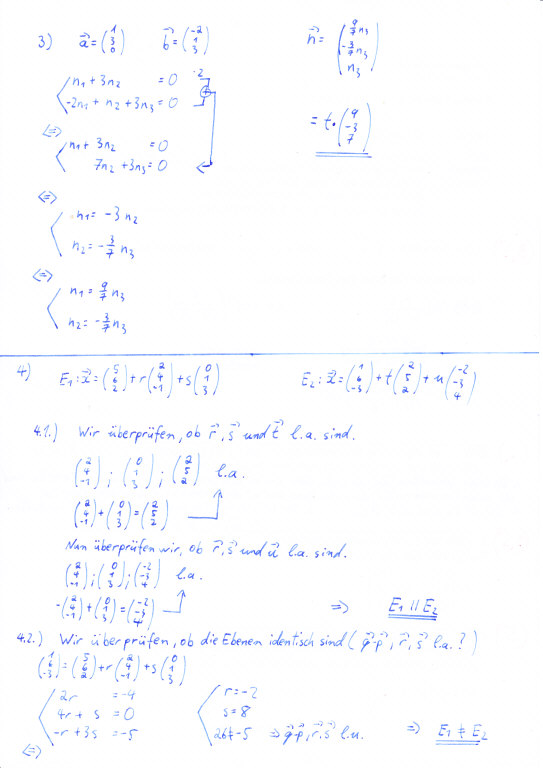 3) a⃗ = (1 3 0) b⃗ = (-2 1 3) n⃗ = (9/7 n₃ -3/7 n₃ n₃)
n₁ + 3n₂ = 0 ·2
-2n₁ + n₂ + 3n₃ = 0 ⊕
= t · (9 -3 7)
⇔
n₁ + 3n₂ = 0
7n₂ + 3n₃ = 0
⇔
n₁ = -3n₂
n₂ = -3/7 n₃
⇔
n₁ = 9/7 n₃
n₂ = -3/7 n₃
4) E₁: x⃗ = (5 6 2) + r (2 4 -1) + s (0 1 3) E₂: x⃗ = (1 6 -3) + t (2 5 2) + u (-2 -3 4)
4.1.) Wir überprüfen, ob r⃗, s⃗ und t⃗ l.a. sind.
(2 4 -1) ; (0 1 3) ; (2 5 2) l.a.
(2 4 -1) + (0 1 3) = (2 5 2)
Nun überprüfen wir, ob r⃗, s⃗ und u⃗ l.a. sind.
(2 4 -1) ; (0 1 3) ; (-2 -3 4) l.a.
-(2 4 -1) + (0 1 3) = (-2 -3 4) ⇒ E₁ || E₂
4.2.) Wir überprüfen, ob die Ebenen identisch sind (q⃗-p⃗, r⃗, s⃗ l.a.?)
(1 6 -3) = (5 6 2) + r (2 4 -1) + s (0 1 3)
2r = -4 r = -2
4r + s = 0 s = 8
-r + 3s = -5 26 ≠ -5 ⇒ q⃗-p⃗, r⃗, s⃗ l.u. ⇒ E₁ ≠ E₂
⇔